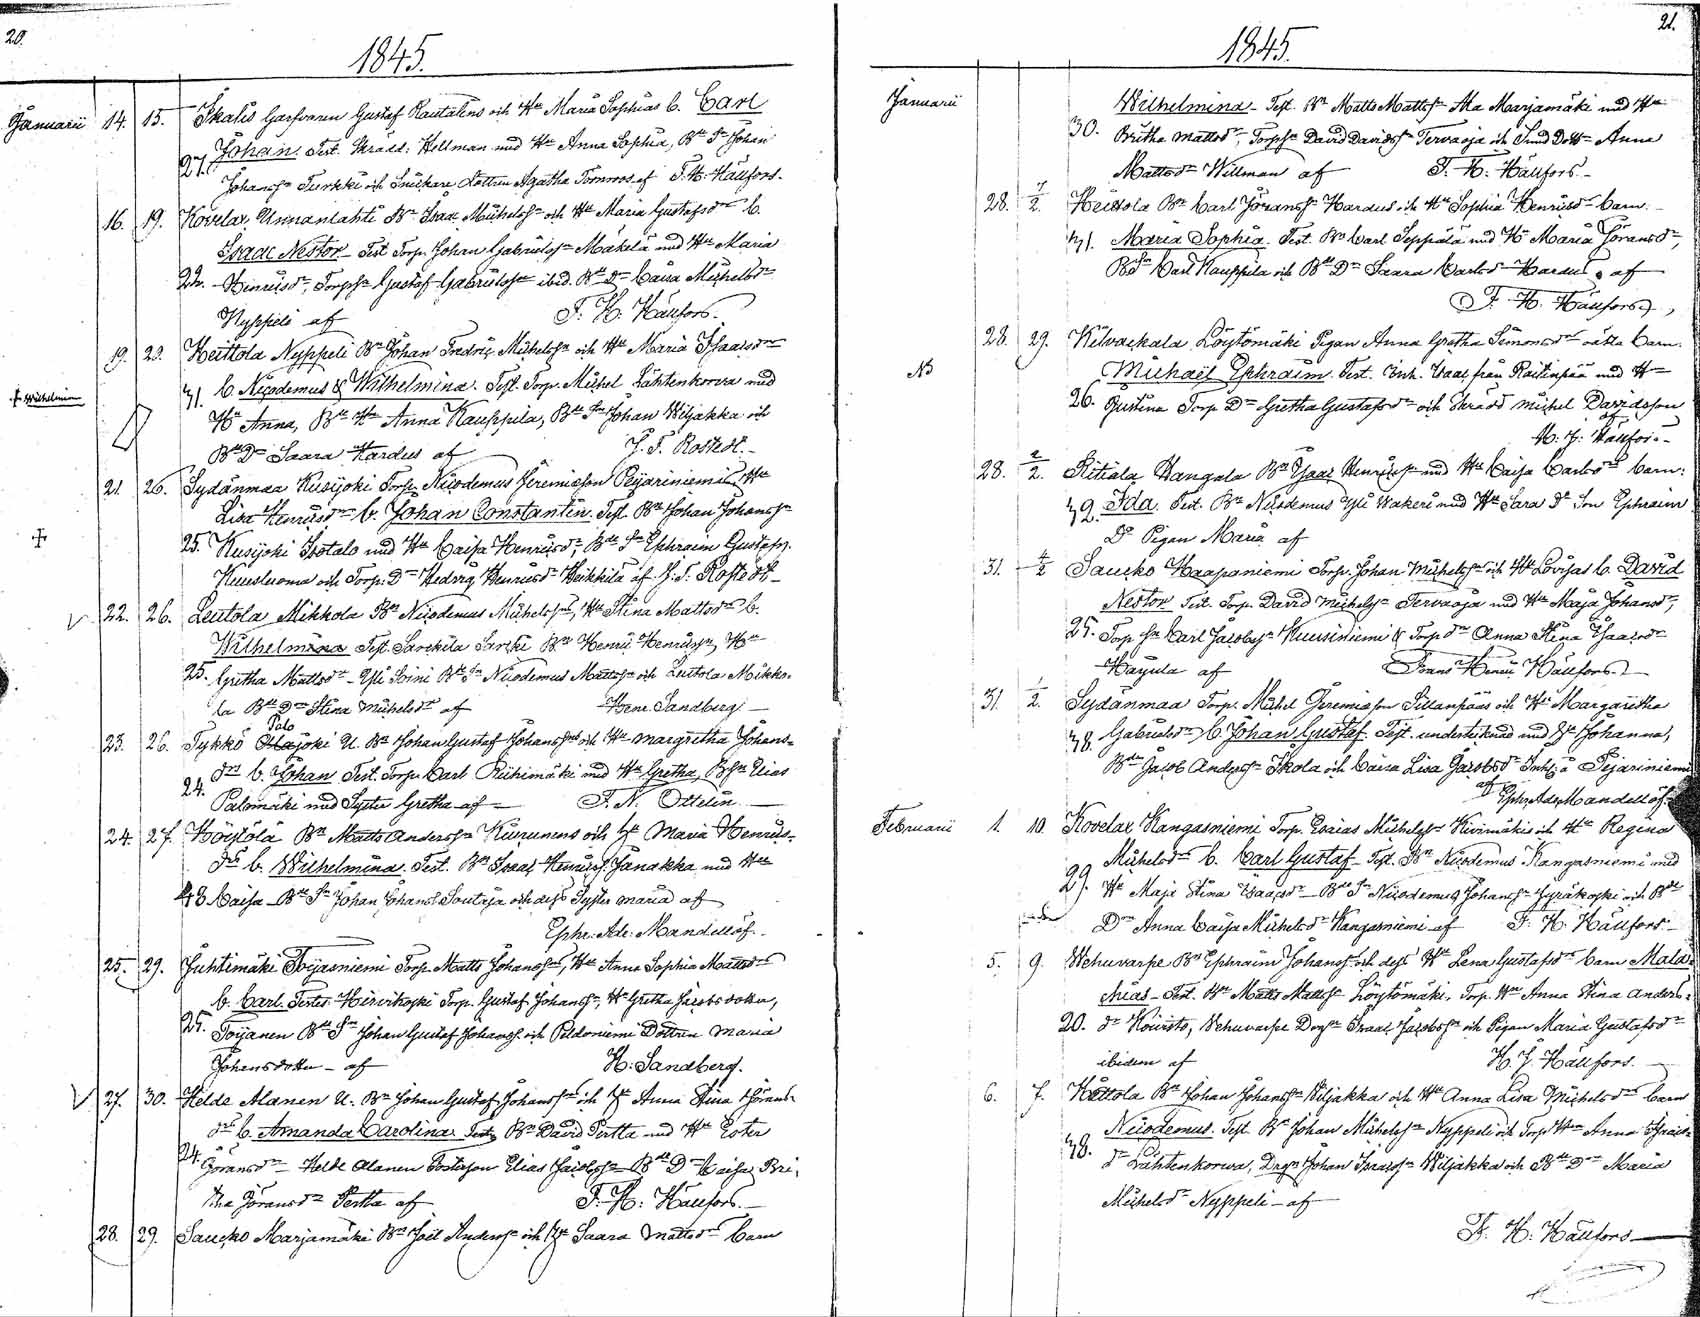 20.
1845.
Januarii 14. 15. Ikalis Garfvaren Gustaf Rautalins och Hu Maria Sophias b. Carl
Johan. Test. Skrädd. Hellman med Hu Anna Sophia, Bde Sn Johan
27.
Johanss Turkki och Snickare dottren Agatha Törnroos af F. H. Hällfors.
16. 19. Kovelax Unnanlahti Bn Isaac Michelss och Hu Maria Gustafsdr b.
Isaac Nestor Test Torp. Johan Gabrielss Mäkelä med Hu Maria
22. Hinricsdr, Torpsn Gustaf Gabrielss ibid. Bde Dr Caisa Michelsdr
Nyppeli af F. H. Hällfors.
19. 20. Heittola Nyppeli Bn Johan Fredric Michelss och Hu Maria Isaacsdr
31. b. Nicodemus & Wilhelmina. Test. Torp. Michel Lähtenkorva med
+ Wilhelmin
Hu Anna, Bde Hu Anna Kauppila, Bde Sn Johan Wiljakka och
Bde Dr Saara Kardus af J. F. Rostedt.
21. 26. Sydänmaa Kusijoki Torp. Nicodemus Jeremiasson Peijariniemis, Hu
Lisa Henricsdr b. Johan Constantin. Test. Bn Johan Johanss
+
25. Kusijoki Isotalo med Hu Caisa Henricsdr, Bde Sn Ephraim Gustafss.
Kuusluoma och Torp. Dr Hedvig Henricsdr Heikkilä af J. F. Rostedt
22. 26. Leutola Mikkola Bn Nicodemus Michelss, Hu Stina Mattsdr b.
Wilhelmina Test. Sarckila Sarcki Bn Henric Henricss, Hu
25. Gretha Mattsdr Yli Soini Bde Sn Nicodemus Mattss och Leutola Mikko-
la Bde Dr Stina Michelsdr af Henr. Sandberg
Palo
23. 26. Tykkö joki U. Bn Johan Gustaf Johanss och Hu Margretha Johans-
dr b. Johan Test. Torp. Carl Riihimäki med Hu Gretha, BSn Elias
24.
Palomäki med Syster Gretha af F. N. Ottelin
24. 27. Höijölä Bn Matts Anderss Kurunens och Hu Maria Henrics-
drs b. Wilhelmina. Test. Bn Isaac Henricss Janakka med Hu
43 Caisa Bde Sn Johan Johanss Soutaja och dess Syster Maria af
Ephr. Ade. Mandellöf.
25. 29. Juhtimäki Toijasniemi Torp. Matts Johanss, Hu Anna Sophia Mattsdr
b. Carl. Testes Hirvikoski Torp. Gustaf Johanss, Hu Gretha Jacobsdotter,
25. Toijanen Bde Sn Johan Gustaf Johanss och Peldoniemi Dottren Maria
Johansdotter af H. Sandberg.
27. 30. Helde Alanen U. Bn Johan Gustaf Johanss och Hu Anna Stina Görans-
drs b. Amanda Carolina. Test. Bn David Pertta med Hu Ester
24. Göransdr Helde Alanen Fosterson Elias Jacobss Bde Dr Caisa Bri-
tha Göransdr Pertta af F. H. Hällfors.
28. 29. Saucko Marjamäki Bn Joel Anderss och Hu Saara Mattsdr barn
21.
1845.
Januarii Wilhelmina Test. Bn Matts Mattss Ala Marjamäki med Hu
30. Britha Mattsdr, Torpsn David Davidss Tervaoja och Smed Dottr Anna
Mattsdr Willman af F. H. Hällfors
28. 7/2. Heittola Bn Carl Göranss Kardus och Hu Sophia Henricsdr barn
31. Maria Sophia. Test. Bn Carl Seppälä med Hu Maria Göransdr,
BSn Carl Kauppila och Bde Dr Saara Carlsdr Kardus af
F. H. Hällfors,
28. 29. Kilvackala Löytömäki Pigan Anna Gretha Simonsdr oäkta barn.
NB Michael Ephraim. Test. Inh. Isaac från Raitinpää med Hu
26. Justina Torp. Dr Gretha Gustafsdr och Skrädd Michel Davidsson
af
H. J. Hällfors
28. 2/2. Ritiala Hangala Bn Isaac Henricss med Hu Caisa Carlsdr barn:
32. Ida. Test. Bn Nicodemus Yli Wakeri med Hu Sara Dr Son Ephraim
Dr Pigan Maria af
31. 4/2 Saucko Haapaniemi Torp. Johan Michelss och Hu Lovisas b. David
Nestor Test. Torp. David Michelss Tervaoja med Hu Maja Johansdr,
25. Torp Sn Carl Jacobss Kuusiniemi & Torp dr Anna Stina Isaacsdr
Haijula af Frans Henric Hällfors.
31. 1/2. Sydänmaa Torp. Michel Jeremiasson Sillanpääs och Hu Margaretha
38. Gabrielsdrs b. Johan Gustaf. Test. undertecknad med Hu Johanna,
Bde Jacob Anderss Skola och Caisa Lisa Jacobsdr Inh. å Pejariniemi
af
Ephr. Ade. Mandellöf.
Februarii 1. 10. Kovelax Kangasniemi Torp. Esaias Michelss Kivimäkis och Hu Regina
Michelsdrs b. Carl Gustaf Test. Bn Nicodemus Kangasniemi med
29. Hu Maja Stina Isaacsdr Bde Sn Nicodemus Johanss Jyräkoski och Bde
Dr Anna Caisa Michelsdr Kangasniemi af F. H. Hällfors
5. 9. Wehuvarpe Bn Ephraim Johanss och dess Hu Lena Gustafsdrs barn Mala-
chias Test. Bn Matts Mattss Löytömäki, Torp. Hu Anna Stina Anders-
20. dr Koivisto, Wehuvarpe Drgn Isaac Jacobss och Pigan Maria Gustafsdr
ibidem af H. J. Hällfors.
6. 7. Hettola Bn Johan Johanss Wiljakka och Hu Anna Lisa Michelsdrs barn
Nicodemus. Test. Bn Johan Michelss Nyppeli och Torp Hu Anna Isaacs-
38. dr Lähtenkorva, Drgn Johan Isaacss Wiljakka och Bde Dr Maria
Michelsdr Nyppeli af
F. H. Hällfors